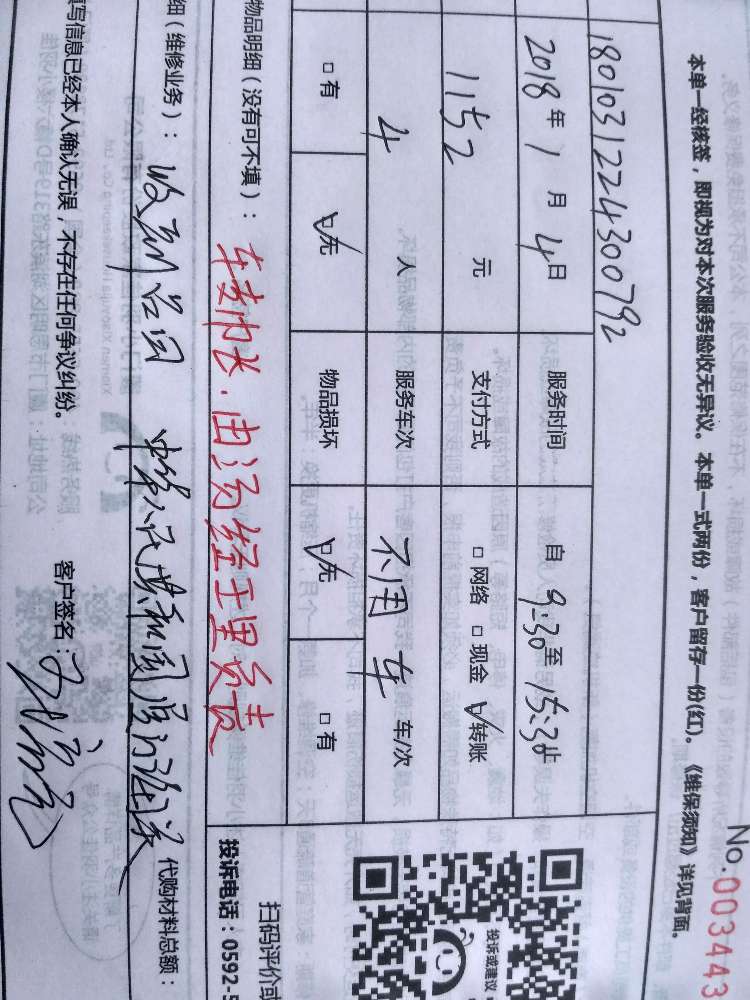 No.003443
本单一经核签，即视为对本次服务验收无异议。本单一式两份，客户留存一份(红)。《维保须知》详见背面。
1801031224300792
2018年 1月 4日 服务时间 自 9:30至 15:30止
1152 元 支付方式 □网络 □现金 ☑转账
4 人 服务车次 不用车 车/次
□有 ☑无 物品损坏 ☑无 □有
物品明细（没有可不填）： 转帐.由汤经理负责
细（维修业务）： 收到公司 中华人民共和国
代购材料总额：
填写信息已经本人确认无误，不存在任何争议纠纷。 客户签名：
投诉或建议
扫码评价或
投诉电话：0592-5